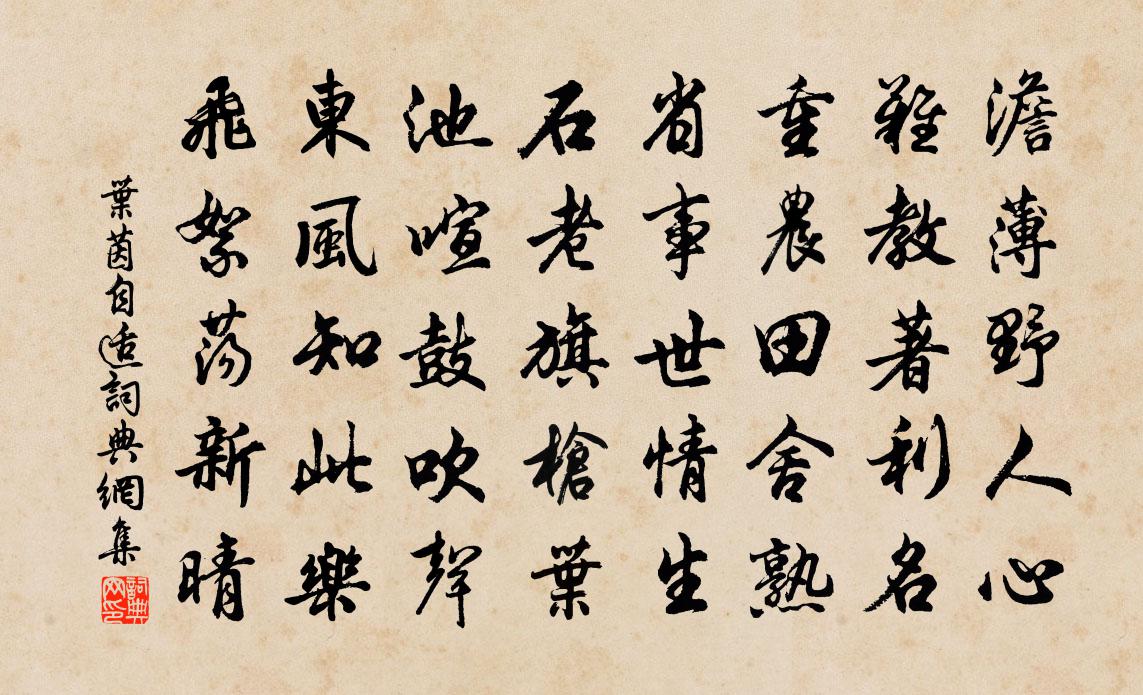 澹薄野人心
難教著利名
重農田舍熟
省事世情生
石老旗槍葉
池喧鼓吹聲
東風知此樂
飛絮蕩新晴
葉茵自適詞典網集
詞典網印